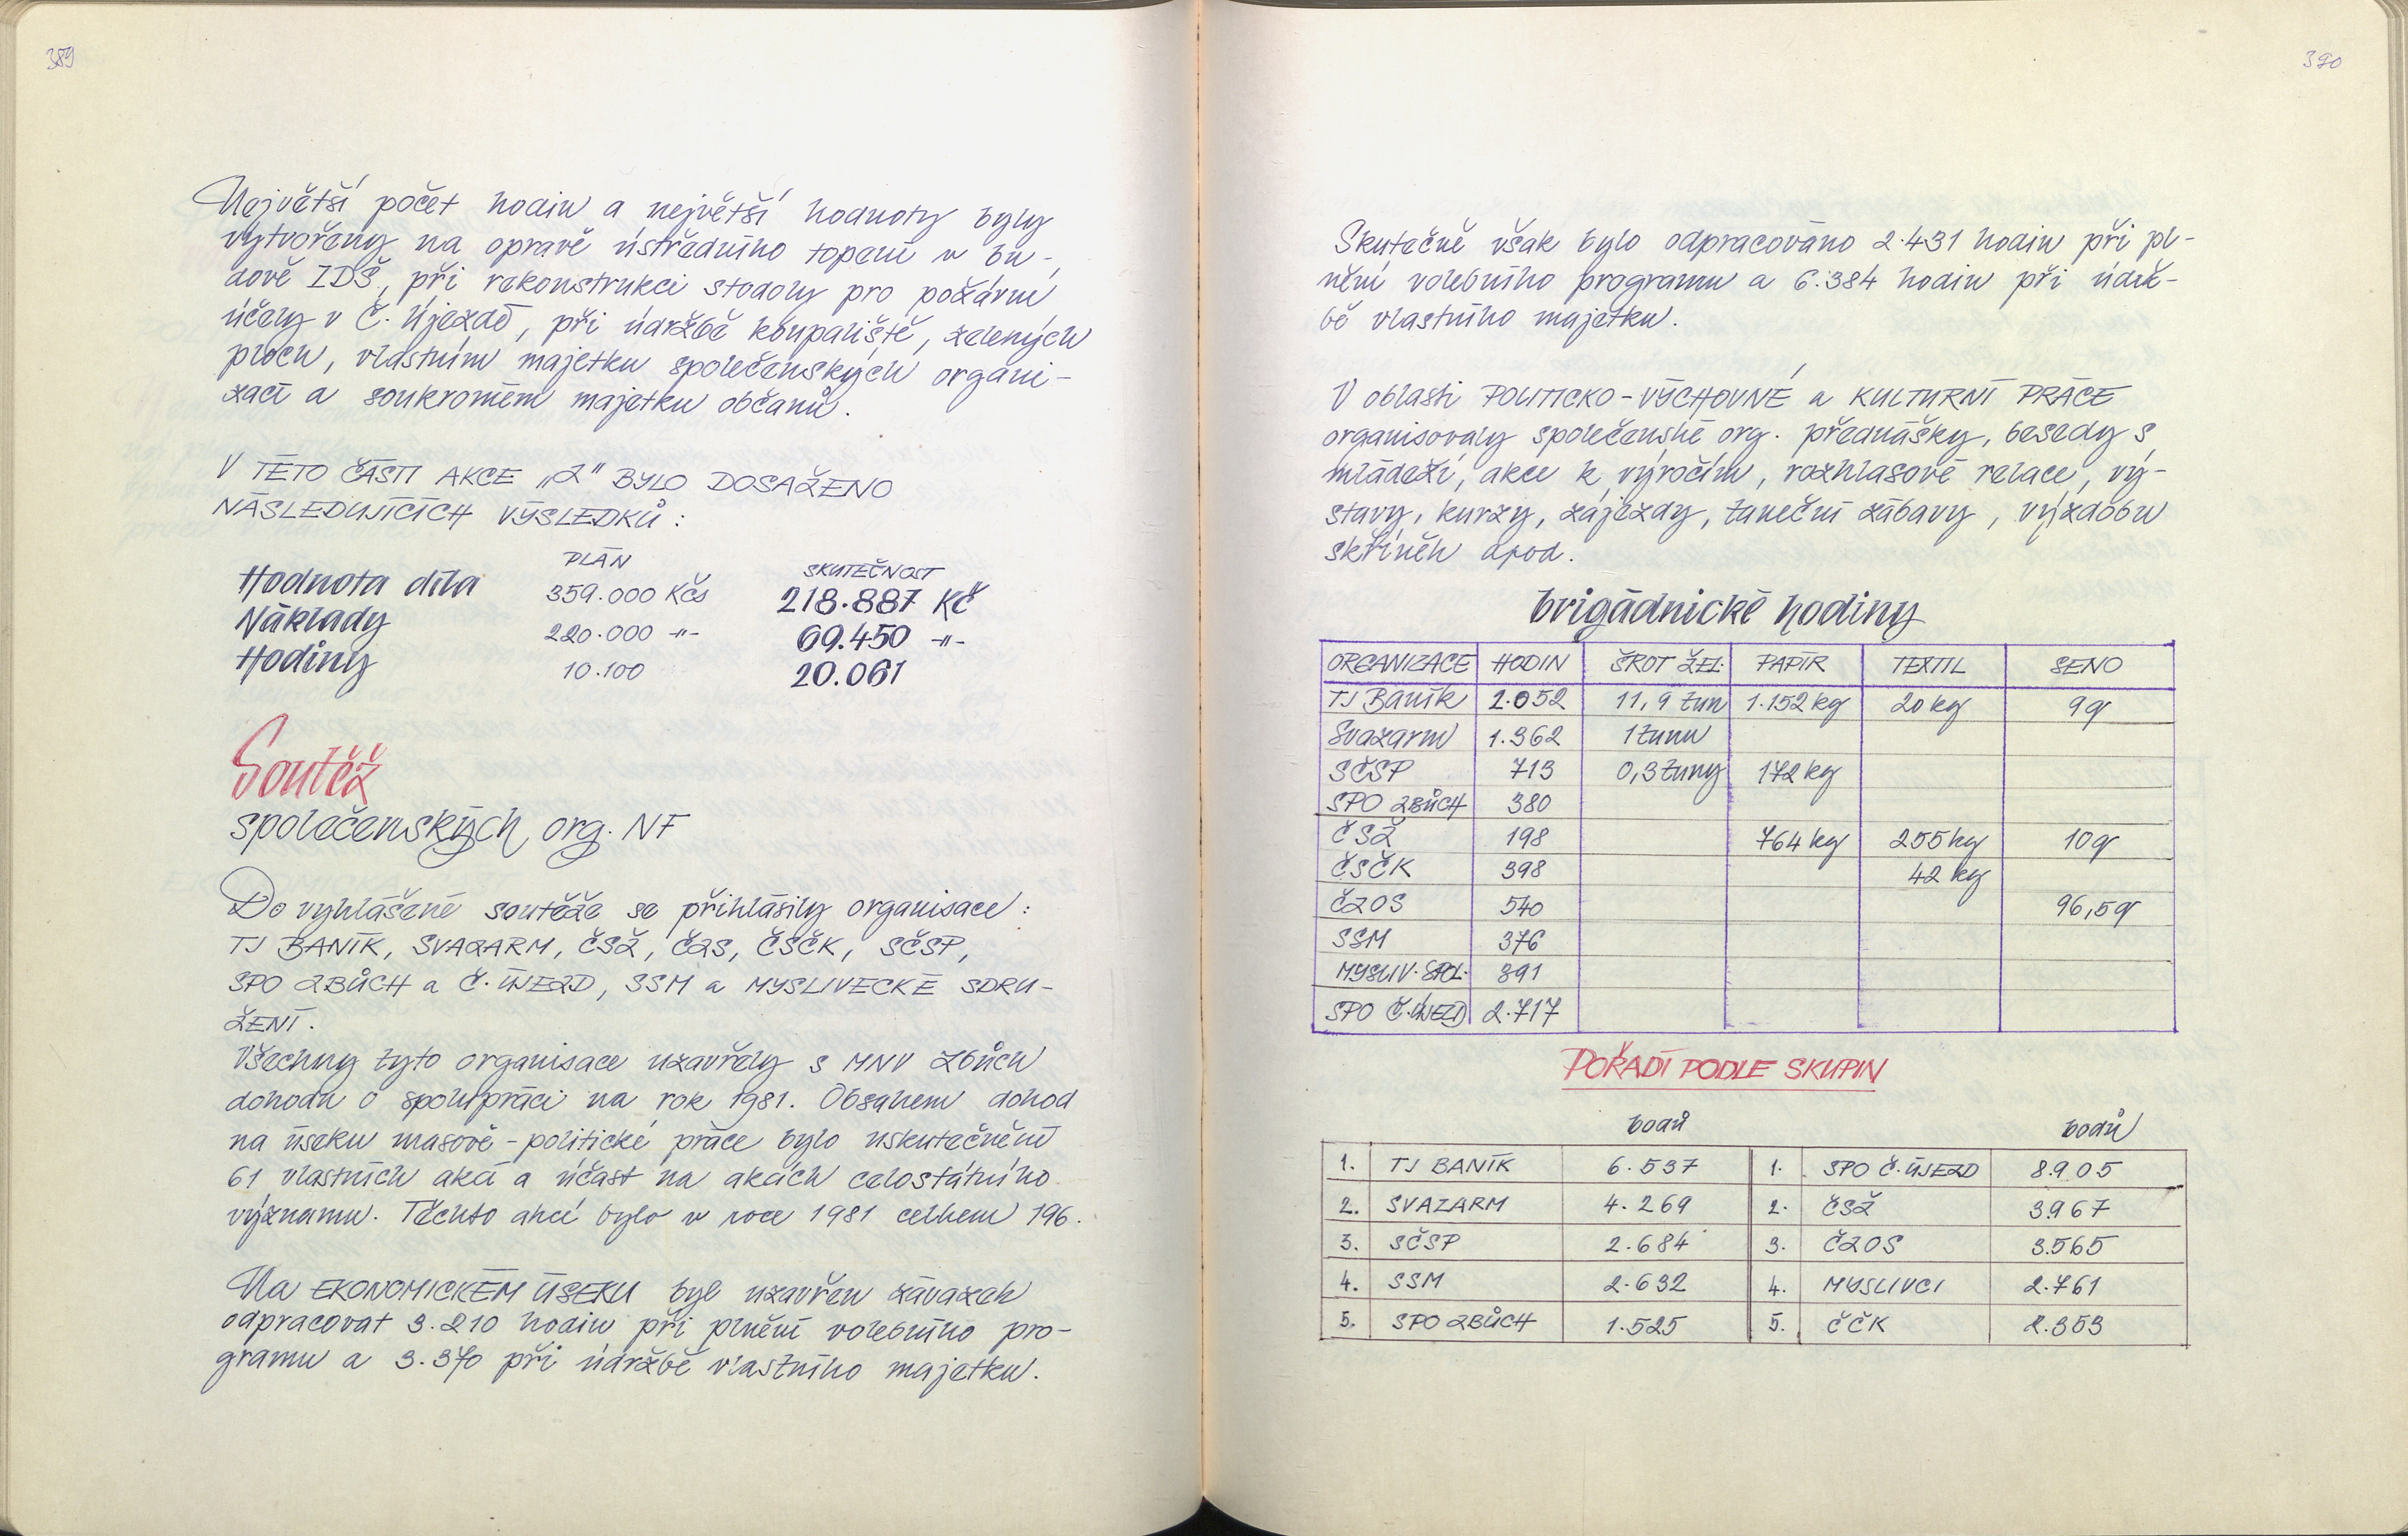 389
Největší počet hodin a největší hodnoty byly
vytvořeny na opravě ústředního topení v bu-
dově ZDŠ, při rekonstrukci stodoly pro požární
účely v Č. Újezdě, při údržbě koupaliště, zelených
ploch, vlastním majetku společenských organi-
zací a soukromém majetku občanů.
V TÉTO ČÁSTI AKCE „Z" BYLO DOSAŽENO
NÁSLEDUJÍCÍCH VÝSLEDKŮ :
PLÁN SKUTEČNOST
Hodnota díla 359.000 Kčs 218.887 Kč
Náklady 220.000 -"- 69.450 -"-
Hodiny 10.100 20.061
Soutěž
společenských org. NF
Do vyhlášené soutěže se přihlásily organisace :
TJ BANÍK, SVAZARM, ČSŽ, ČZS, ČSČK, SČSP,
SPO ZBŮCH a Č. ÚJEZD, SSM a MYSLIVECKÉ SDRU-
ŽENÍ.
Všechny tyto organisace uzavřely s MNV Zbůch
dohodu o spolupráci na rok 1981. Obsahem dohod
na úseku masově-politické práce bylo uskutečnění
61 vlastních akcí a účast na akcích celostátního
významu. Těchto akcí bylo v roce 1981 celkem 196.
Na EKONOMICKÉM ÚSEKU byl uzavřen závazek
odpracovat 3.210 hodin při plnění volebního pro-
gramu a 3.370 při údržbě vlastního majetku.
390
Skutečně však bylo odpracováno 2.431 hodin při pl-
nění volebního programu a 6.384 hodin při údrž-
bě vlastního majetku.
V oblasti POLITICKO-VÝCHOVNÉ a KULTURNÍ PRÁCE
organisovaly společenské org. přednášky, besedy s
mládeží, akce k výročím, rozhlasové relace, vý-
stavy, kurzy, zájezdy, taneční zábavy, výzdobu
skříněk apod.
brigádnické hodiny
ORGANIZACE HODIN ŠROT ŽEL. PAPÍR TEXTIL SENO
TJ Baník 2.052 11,9 tun 1.152 kg 20 kg 9 q
Svazarm 1.362 1 tunu
SČSP 713 0,3 tuny 172 kg
SPO ZBŮCH 380
ČSŽ 198 764 kg 255 kg 10 q
ČSČK 398 42 kg
ČZOS 540 96,5 q
SSM 376
MYSLIV. SPOL. 391
SPO Č.ÚJEZD 2.717
POŘADÍ PODLE SKUPIN
bodů bodů
1. TJ BANÍK 6.537 1. SPO Č. ÚJEZD 8.905
2. SVAZARM 4.269 2. ČSŽ 3967
3. SČSP 2.684 3. ČZOS 3.565
4. SSM 2.632 4. MYSLIVCI 2.761
5. SPO ZBŮCH 1.525 5. ČČK 2.353